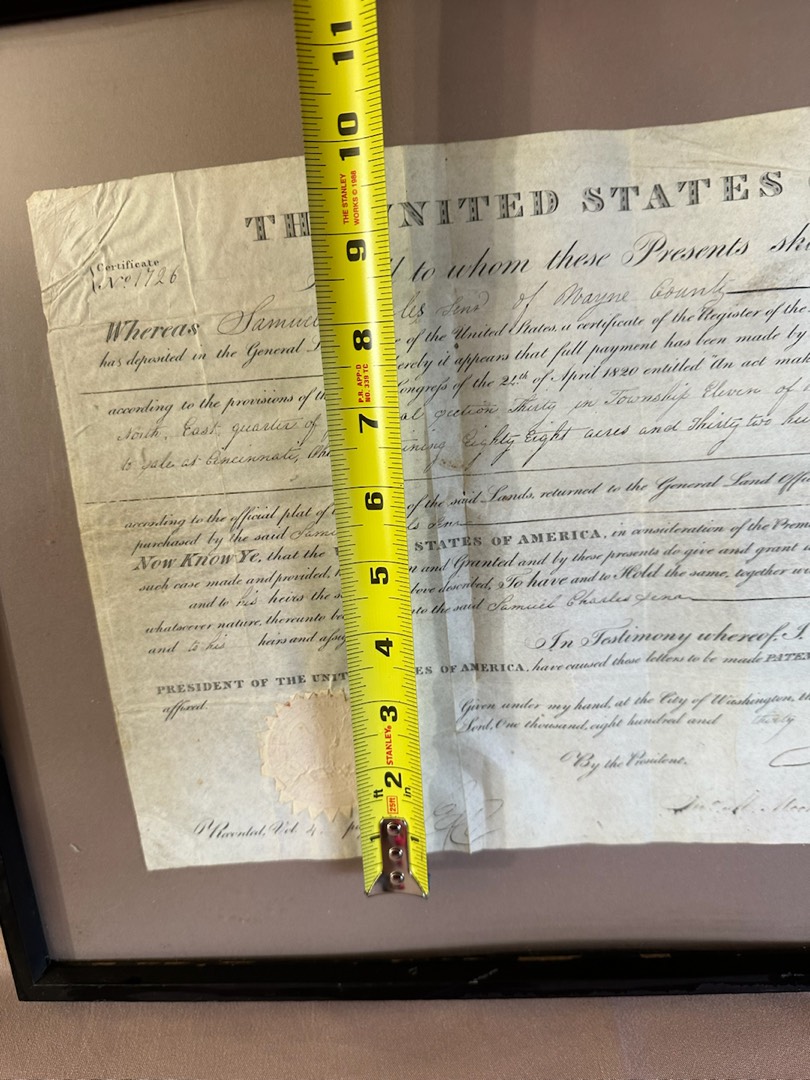 11
10
THE STANLEY
WORKS © 1988
9
8
P.R. APP-D
NO. 339 TC
7
6
5
4
3
STANLEY®
2
25ft
ft
in
1
1
TH NITED STATES
Certificate
No. 1726
to whom these Presents
Whereas Samuel les Senr of Wayne County
has deposited in the General of the United States, a certificate of the Register of the
it appears that full payment has been made by
according to the provisions of th Congress of the 24th of April 1820 entitled "An act
North East quarter of section Thirty in Township Eleven of
to sale at Cincinnati, Eighty Eight acres and Thirty two
according to the official plat of of the said Lands, returned to the General Land
purchased by the said
Now Know Ye, that the STATES OF AMERICA, in consideration of the
such case made and provided, and Granted and by these presents do give and grant
and to his heirs the described, To have and to Hold the same, together
whatsoever nature, thereunto to the said Samuel Charles Senr
and to his heirs and In Testimony whereof, I
PRESIDENT OF THE UNIT ES OF AMERICA, have caused these letters to be made PATE
affixed. Given under my hand, at the City of Washington, th
Lord, One thousand, eight hundred and thirty
By the President.
Recorded, Vol. 4